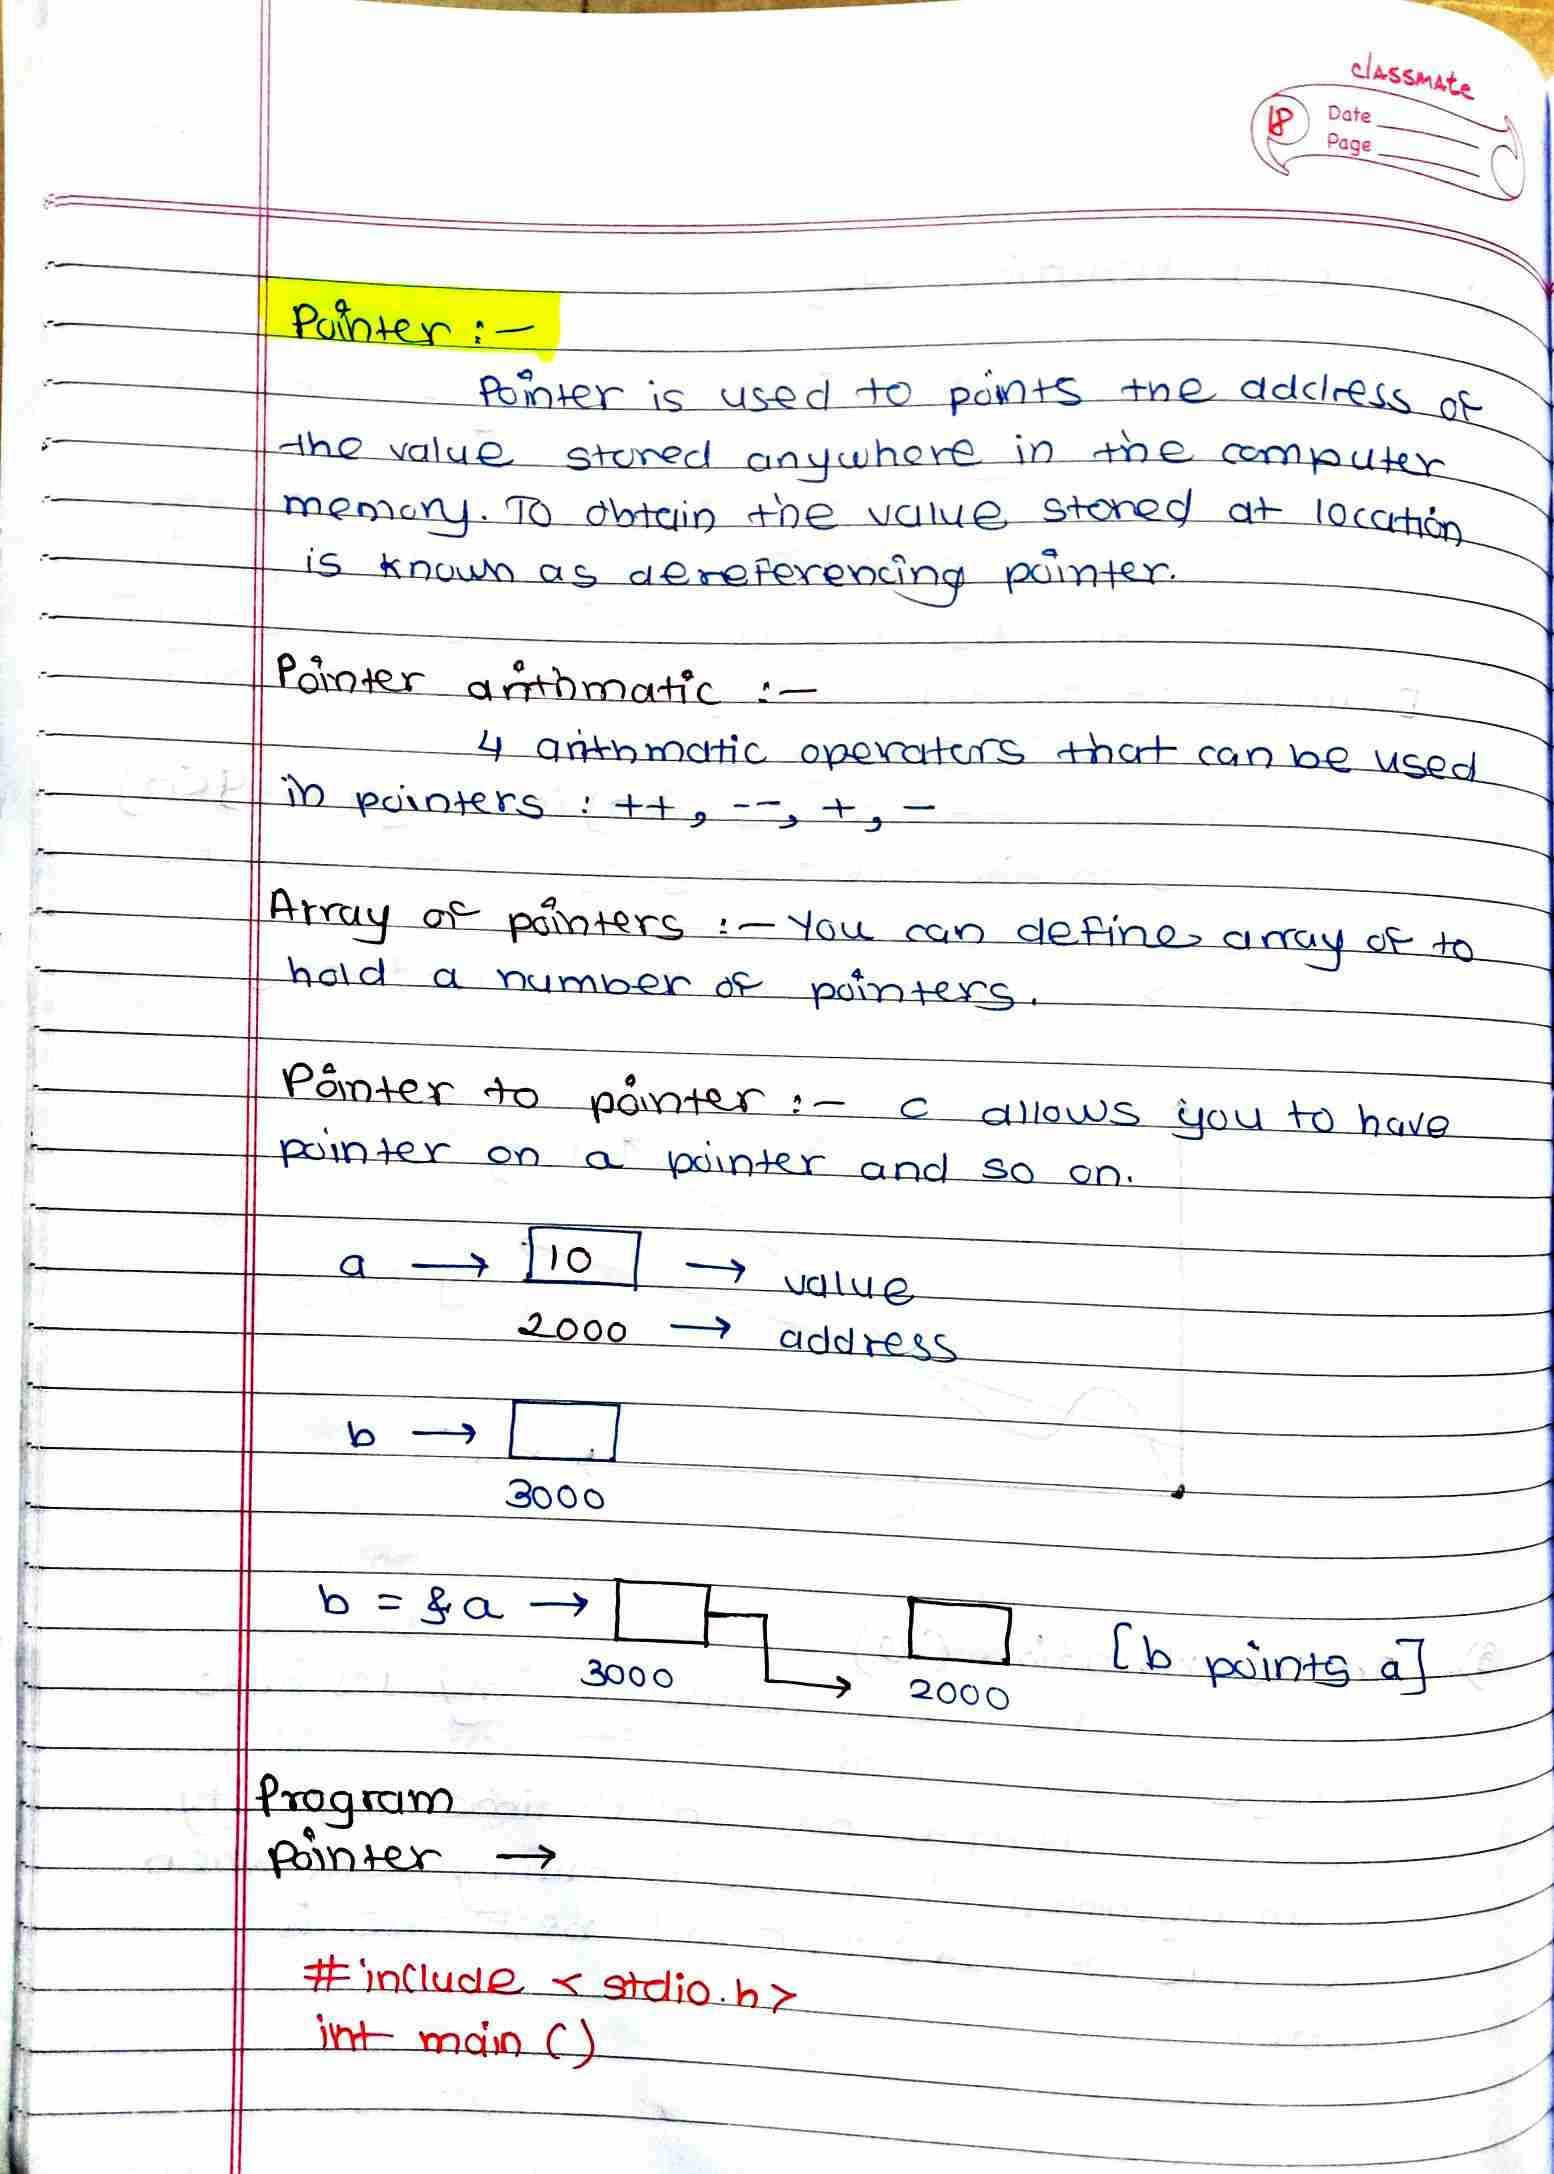 classmate
18
Date
Page
Pointer :-
Pointer is used to points the address of
the value stored anywhere in the computer
memory. To obtain the value stored at location
is known as dereferencing pointer.
Pointer arithmatic :-
4 arithmatic operators that can be used
in pointers : ++, --, +, -
Array of pointers :- You can define array of to
hold a number of pointers.
Pointer to pointer :- c allows you to have
pointer on a pointer and so on.
a → 10 → value
2000 → address
b →
3000
b = &a → [b points a]
3000 2000
Program
pointer →
#include < stdio.h>
int main ()